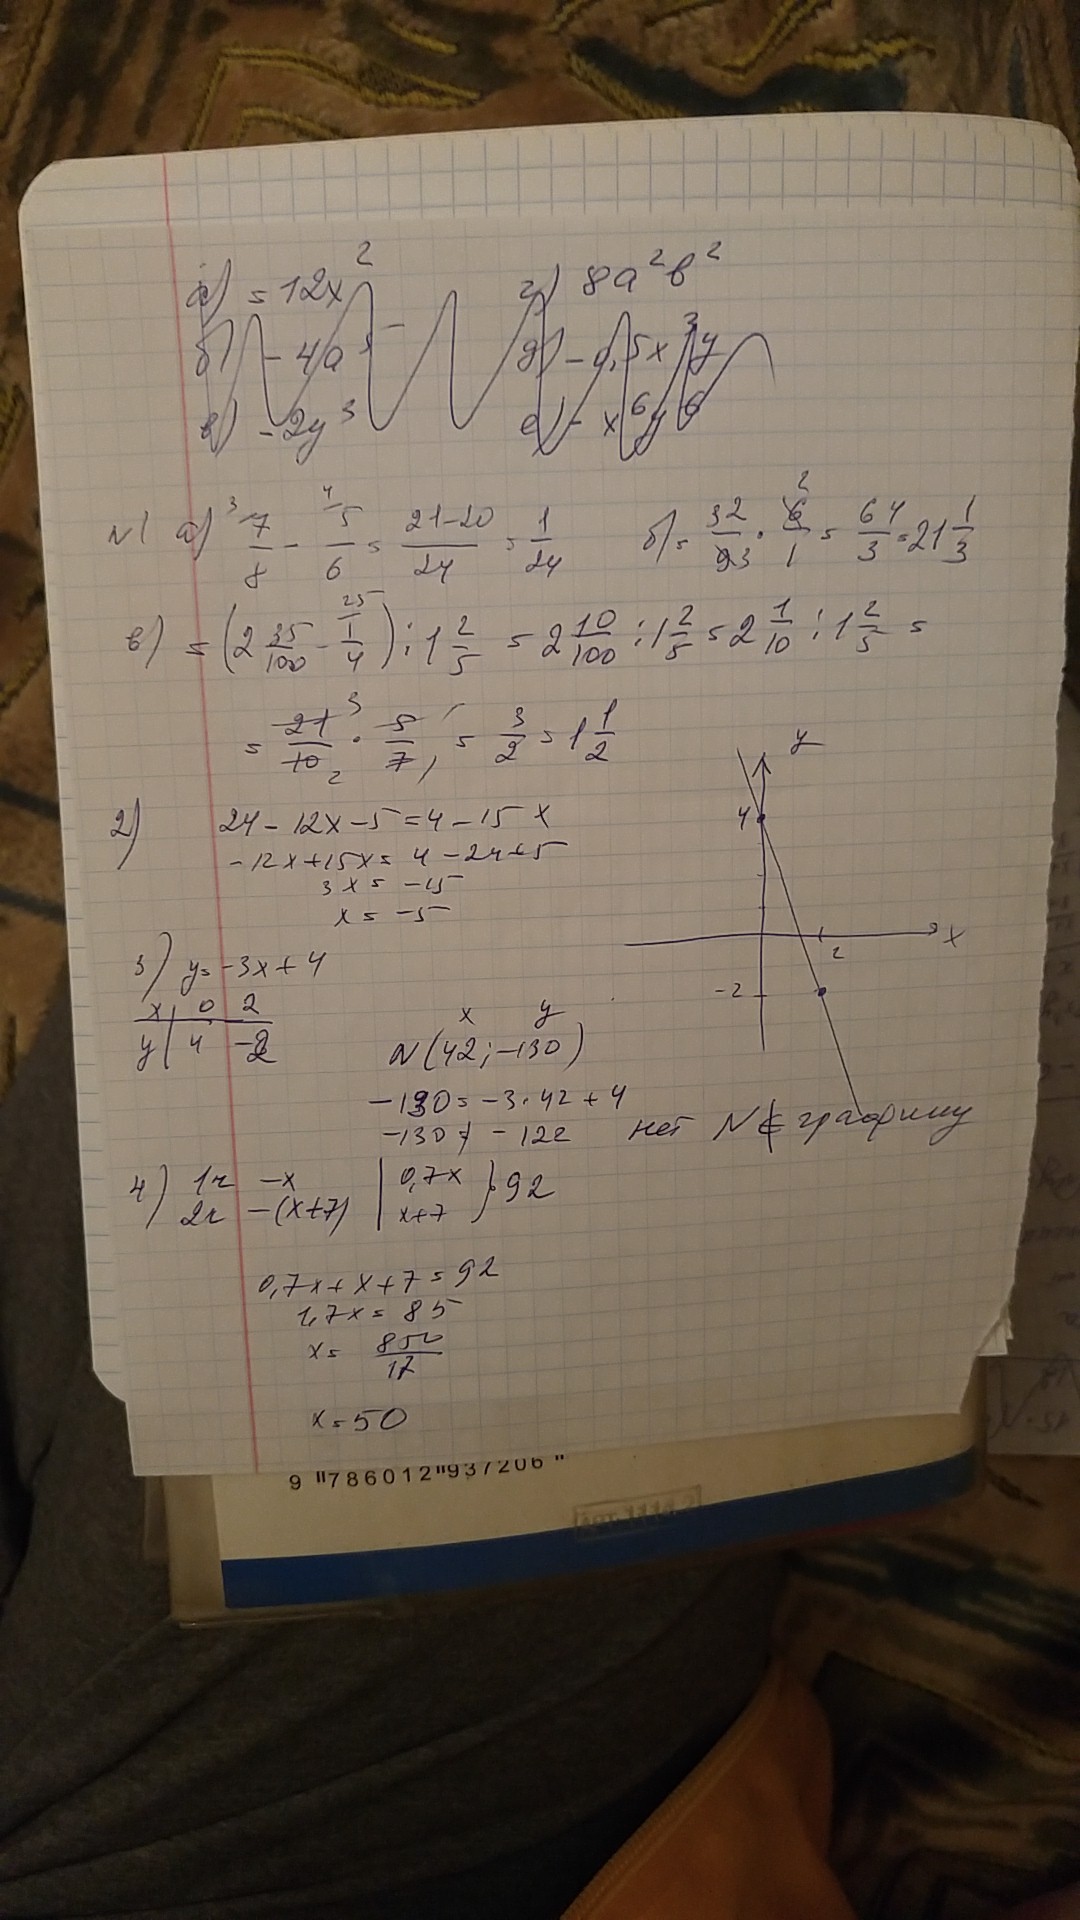 а) = 12x² г) 8a²b²
б) - 4a³ д) - 0,5x³y
в) - 2y³ е) - x⁶y⁶
N1 а) 7/8 - 5/6 = (21-20)/24 = 1/24 б) = 32/93 · 6/1 = 64/3 = 21 1/3
в) = (2 35/100 - 1/4) : 1 2/5 = 2 10/100 : 1 2/5 = 2 1/10 : 1 2/5 =
= 21/10 · 5/7 = 3/2 = 1 1/2
2) 24 - 12x - 5 = 4 - 15x
-12x + 15x = 4 - 24 + 5
3x = -15
x = -5
y
4
x
2
-2
3) y = -3x + 4
x | 0 2
y | 4 -2
x y
N (42; -130)
-130 = -3 · 42 + 4
-130 ≠ - 122 нет N ∉ графику
4) 1г - x | 0,7x } 92
2г - (x+7) | x+7
0,7x + x + 7 = 92
1,7x = 85
x = 850/17
x = 50
9 "786012"937206"
Арт. 1114.2